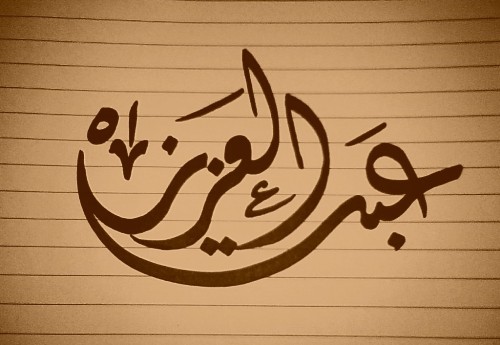 عبد العزيز